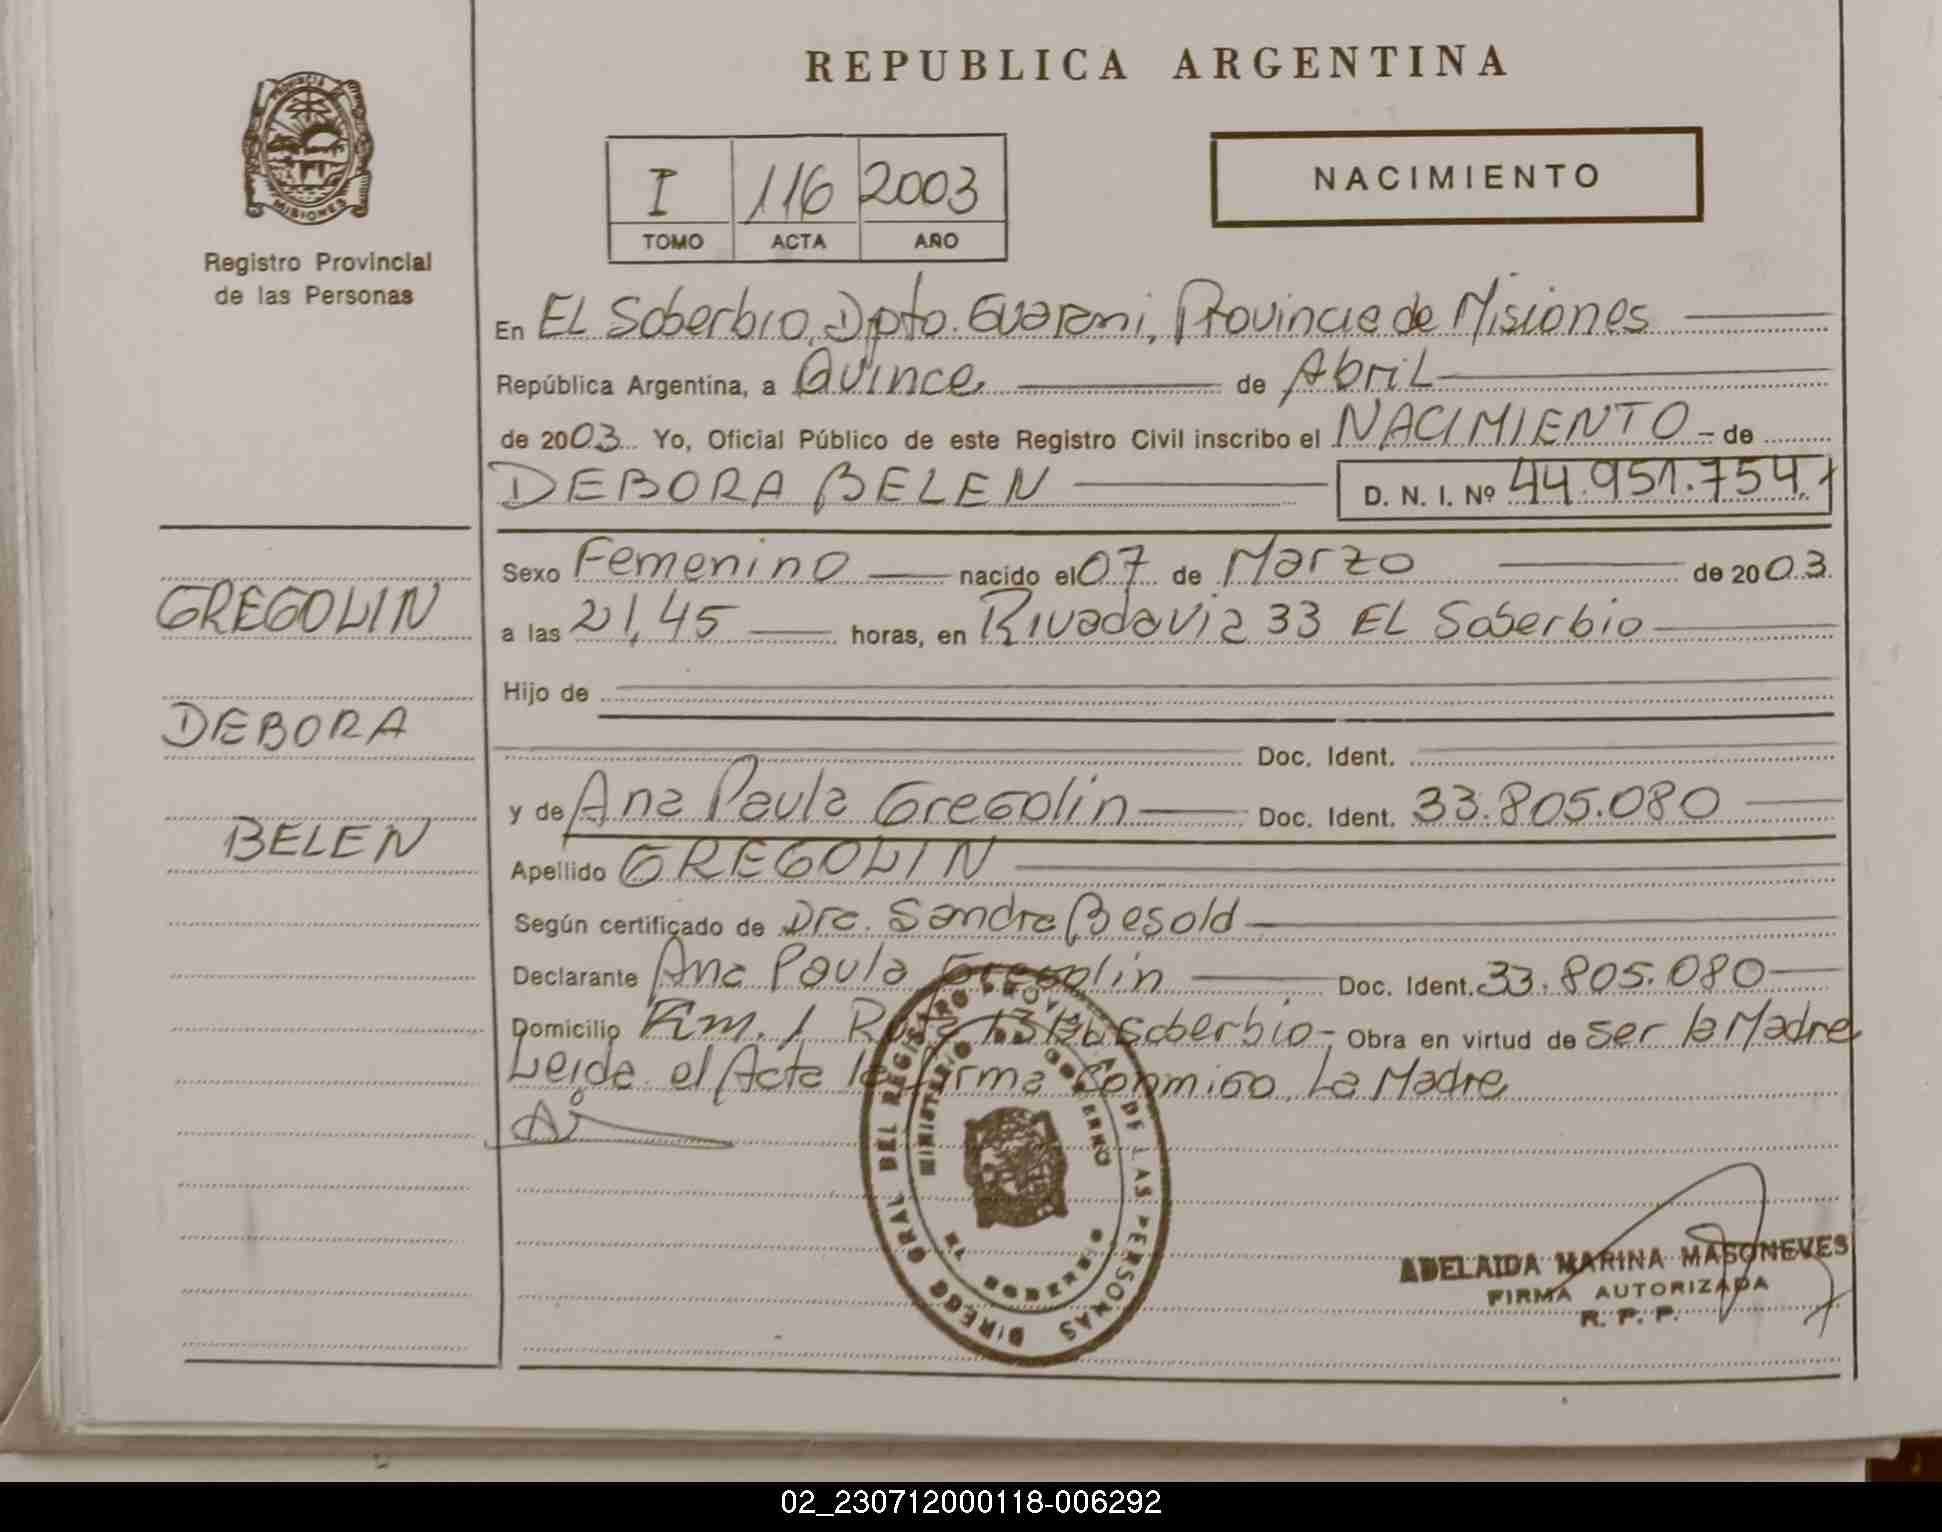 REPUBLICA ARGENTINA
PROVINCIA
MISIONES
Registro Provincial
de las Personas
I 116 2003
TOMO ACTA AÑO
NACIMIENTO
En EL Soberbio, Dpto. Guarani, Provincia de Misiones
República Argentina, a Quince de Abril
de 2003 Yo, Oficial Público de este Registro Civil inscribo el NACIMIENTO - de
DEBORA BELEN D. N. I. Nº 44.951.754
Sexo Femenino nacido el 07 de Marzo de 2003
a las 21,45 horas, en Rivadavia 33 EL Soberbio
Hijo de
Doc. Ident.
y de Ana Paula Gregolin Doc. Ident. 33.805.080
Apellido GREGOLIN
Según certificado de Dra. Sandra Besold
Declarante Ana Paula Gregolin Doc. Ident. 33.805.080
Domicilio Km. 1 Ruta 13 EL Soberbio - Obra en virtud de ser la Madre
Leida el Acta la firma Conmigo, La Madre
GREGOLIN
DEBORA
BELEN
DIRECC GRAL DEL REGISTRO PROV. DE LAS PERSONAS
MINISTERIO DE GOBIERNO
ADELAIDA MARINA MASONEVES
FIRMA AUTORIZADA
R. P. P.
02_230712000118-006292